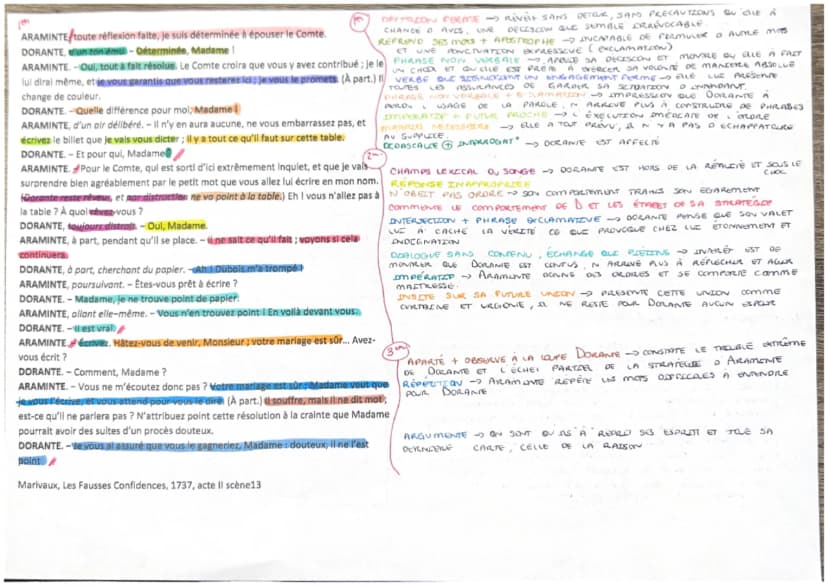 1er
ARAMINTE, toute réflexion faite, je suis déterminée à épouser le Comte.
DORANTE, d'un ton ému. – Déterminée, Madame !
ARAMINTE. – Oui, tout à fait résolue. Le Comte croira que vous y avez contribué ; je le
lui dirai même, et je vous garantis que vous resterez ici ; je vous le promets. (À part.) Il
change de couleur.
DORANTE. – Quelle différence pour moi, Madame !
ARAMINTE, d'un air délibéré. – Il n'y en aura aucune, ne vous embarrassez pas, et
écrivez le billet que je vais vous dicter ; il y a tout ce qu'il faut sur cette table.
DORANTE. – Et pour qui, Madame ?
ARAMINTE. – Pour le Comte, qui est sorti d'ici extrêmement inquiet, et que je vais
surprendre bien agréablement par le petit mot que vous allez lui écrire en mon nom.
(Dorante reste rêveur, et par distraction ne va point à la table.) Eh ! vous n'allez pas à
la table ? À quoi rêvez-vous ?
DORANTE, toujours distrait. – Oui, Madame.
ARAMINTE, à part, pendant qu'il se place. – Il ne sait ce qu'il fait ; voyons si cela
continuera.
DORANTE, à part, cherchant du papier. – Ah ! Dubois m'a trompé !
ARAMINTE, poursuivant. – Êtes-vous prêt à écrire ?
DORANTE. – Madame, je ne trouve point de papier.
ARAMINTE, allant elle-même. – Vous n'en trouvez point ! En voilà devant vous.
DORANTE. – Il est vrai.
ARAMINTE. – Écrivez. Hâtez-vous de venir, Monsieur ; votre mariage est sûr... Avez-
vous écrit ?
DORANTE. – Comment, Madame ?
ARAMINTE. – Vous ne m'écoutez donc pas ? Votre mariage est sûr ; Madame veut que
je vous l'écrive, et vous attend pour vous le dire. (À part.) Il souffre, mais il ne dit mot ;
est-ce qu'il ne parlera pas ? N'attribuez point cette résolution à la crainte que Madame
pourrait avoir des suites d'un procès douteux.
DORANTE. – Je vous ai assuré que vous le gagneriez, Madame : douteux, il ne l'est
point.
Marivaux, Les Fausses Confidences, 1737, acte II scène13
1er
FERME → RÉVÈLE SANS DETOUR, SANS PRÉCAUTIONS QU'ELLE A
CHANGÉ D'AVIS, UNE DÉCISION QUI SEMBLE IRRÉVOCABLE.
REPREND SES MOTS + APOSTROPHE → INCAPABLE DE FORMULER D'AUTRE MOTS
ET UNE PONCTUATION EXPRESSIVE (EXCLAMATION)
PHRASE NON VERBALE → APPUIE SA DÉCISION ET MONTRE QU'ELLE A FAIT
UN CHOIX ET QU'ELLE EST PRÊTE À EXERCER SA VOLONTÉ DE MANIÈRE ABSOLUE
VERBE QUI UN ENGAGEMENT FERME → ELLE LUI PRÉSENTE
TOUTES LES ASSURANCES DE GARDER SA SITUATION D'INTENDANT.
PHRASE NON VERBALE + EXCLAMATION → IMPRESSION QUE DORANTE À
PERDU L'USAGE DE LA PAROLE, N'ARRIVE PLUS À CONSTRUIRE DE PHRASES
IMPÉRATIF + FUTUR PROCHE → L'ÉXÉCUTION IMÉDIATE DE L'ORDRE
→ ELLE A TOUT PRÉVU, IL N'Y A PAS D'ÉCHAPPATOIRE
AU SUPPLICE.
DIDASCALIE ⊕ INTERROGAT° → DORANTE EST AFFECTÉ
2ème
CHAMPS LEXICAL DU SONGE → DORANTE EST HORS DE LA RÉALITÉ ET SOUS LE
CHOC
RÉPONSE INAPPROPRIÉE
N'OBEIT PAS ORDRE → SON COMPORTEMENT TRAHIS SON ÉGAREMENT
COMMENTE LE COMPORTEMENT DE D ET LES EFFETS DE SA STRATÉGIE
INTERJECTION + PHRASE EXCLAMATIVE → DORANTE PENSE QUE SON VALET
LUI À CACHÉ LA VÉRITÉ CE QUE PROVOQUE CHEZ LUI ETONNEMENT ET
INDIGNATION
DIALOGUE SANS CONTENU, ÉCHANGE QUI PIETINE → INTÉRÊT EST DE
MONTRER QUE DORANTE EST CONFUS, N'ARRIVE PLUS À RÉFLÉCHIR ET AGIR
IMPÉRATIF → ARAMINTE DONNE DES ORDRES ET SE COMPORTE COMME
MAITRESSE.
INSISTE SUR SA FUTURE UNION → PRÉSENTE CETTE UNION COMME
CERTAINE ET URGENTE, IL NE RESTE POUR DORANTE AUCUN ESPOIR
3ème
APARTÉ + OBSERVE À LA LOUPE DORANTE → CONSTATE LE TROUBLE EXTRÊME
DE DORANTE ET L'ÉCHEC PARTIEL DE LA STRATÉGIE D'ARAMINTE
RÉPÉTITION → ARAMINTE RÉPÈTE LES MOTS DIFFICILES À ENTENDRE
POUR DORANTE
ARGUMENTE → ON SENT QU'IL A REPRIS SES ESPRITS ET JOUE SA
DERNIÈRE CARTE, CELLE DE LA RAISON